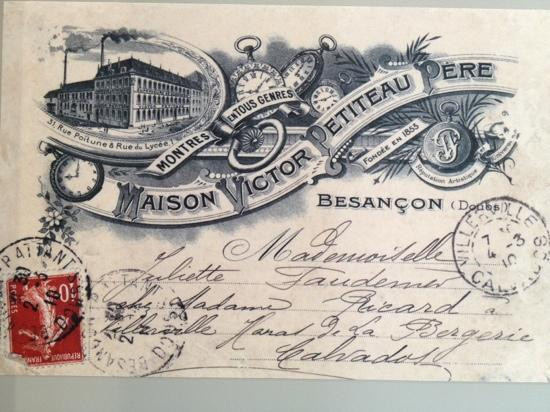 31, Rue Poitune & Rue du Lycée, 1
MONTRES EN TOUS GENRES
MAISON VICTOR PETITEAU PÈRE
FONDÉE EN 1855
Réputation Artistique
BESANÇON (Doubs)
Mademoiselle
Juliette Faudemer
chez Madame Ricard à
Villerville Haras de la Bergerie
Calvados
VILLERVILLE
7-3
10
CALVADOS
10
POSTES
REPUBLIQUE FRANÇAISE
BESANÇON